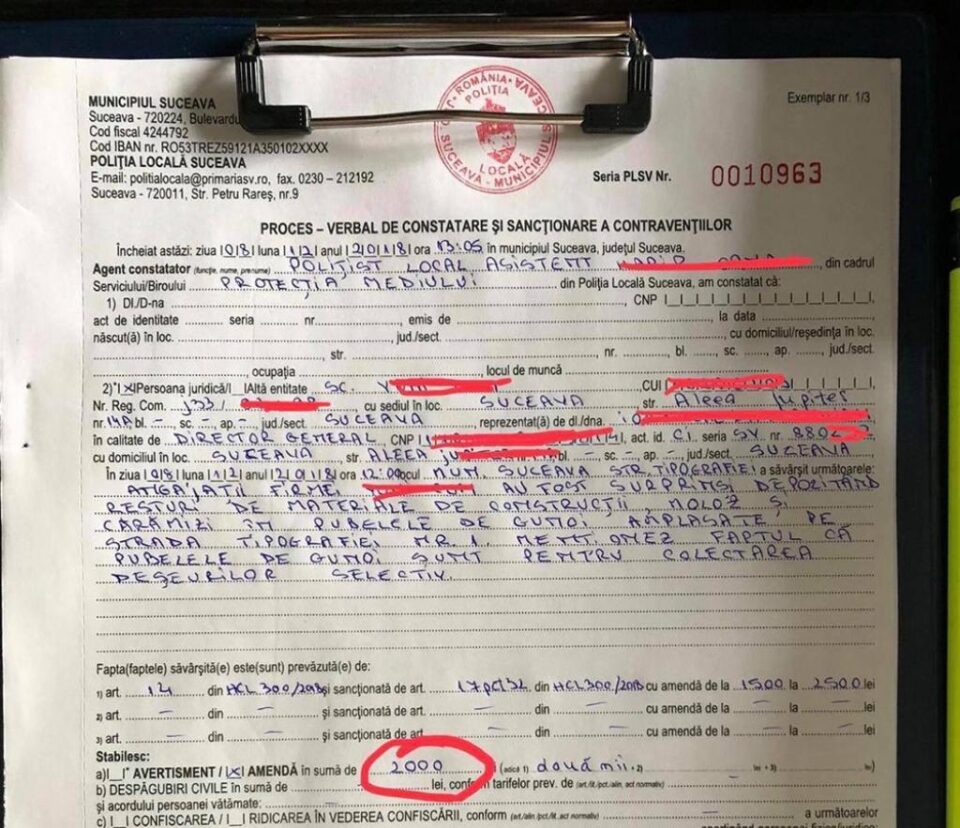 MUNICIPIUL SUCEAVA
Suceava - 720224, Bulevardu
Cod fiscal 4244792
Cod IBAN nr. RO53TREZ59121A350102XXXX
POLIȚIA LOCALĂ SUCEAVA
E-mail: politialocala@primariasv.ro, fax. 0230 – 212192
Suceava - 720011, Str. Petru Rareș, nr.9
ROMÂNIA
POLIȚIA
LOCALĂ
SUCEAVA - MUNICIPIUL SUCEAVA
Exemplar nr. 1/3
Seria PLSV Nr. 0010963
PROCES – VERBAL DE CONSTATARE ȘI SANCȚIONARE A CONTRAVENȚIILOR
Încheiat astăzi: ziua |0|8| luna |1|2| anul |2|0|1|8| ora 13:05 în municipiul Suceava, județul Suceava.
Agent constatator (funcție, nume, prenume) POLIȚIST LOCAL ASISTENT , din cadrul
Serviciului/Biroului PROTECȚIA MEDIULUI din Poliția Locală Suceava, am constatat că:
1) Dl./D-na , CNP |_|_|_|_|_|_|_|_|_|_|_|_|_|,
act de identitate seria nr. , emis de la data ,
născut(ă) în loc. , jud./sect. , cu domiciliul/reședința în loc.
, str. , nr. , bl. , sc. , ap. , jud./sect.
, ocupația , locul de muncă
2)*|X|Persoana juridică/|_|Altă entitate SC. CUI
Nr. Reg. Com. J33/ cu sediul în loc. SUCEAVA str. Aleea Jupiter
nr. 14A bl. - , sc. - , ap. - , jud./sect. SUCEAVA , reprezentat(ă) de dl./dna.
în calitate de DIRECTOR GENERAL CNP , act. id. C.I. seria SV nr.
cu domiciliul în loc. SUCEAVA , str. ALEEA bl. – sc. – ap. – jud./sect. SUCEAVA
În ziua |0|8| luna |1|2| anul |2|0|1|8| ora 12:00 locul MUN SUCEAVA STR. TIPOGRAFIEI a săvârșit următoarele:
ANGAJAȚII FIRMEI AU FOST SURPRINȘI DEPOZITÂND
RESTURI DE MATERIALE DE CONSTRUCȚII, MOLOZ ȘI
CĂRĂMIZI ÎN PUBELELE DE GUNOI AMPLASATE PE
STRADA TIPOGRAFIEI NR 1. MENȚIONEZ FAPTUL CĂ
PUBELELE DE GUNOI SUNT PENTRU COLECTAREA
DEȘEURILOR SELECTIV.
Fapta(faptele) săvârșită(e) este(sunt) prevăzută(e) de:
1) art. 14 din HCL 300/2018 și sancționată de art. 17 pct 32 din HCL 300/2018 cu amendă de la 1500 la 2500 lei
2) art. – din – și sancționată de art. – din – cu amendă de la – la – lei
3) art. – din – și sancționată de art. – din – cu amendă de la – la – lei
Stabilesc:
a)|_|* AVERTISMENT / |X| AMENDĂ în sumă de 2000 (adică 1) două mii + 2) lei + 3) lei)
b) DESPĂGUBIRI CIVILE în sumă de lei, conform tarifelor prev. de (art./lit./pct./alin, act normativ)
și acordului persoanei vătămate:
c) |_| CONFISCAREA / |_| RIDICAREA ÎN VEDEREA CONFISCĂRII, conform (art./alin./pct./lit. act normativ) – a următoarelor